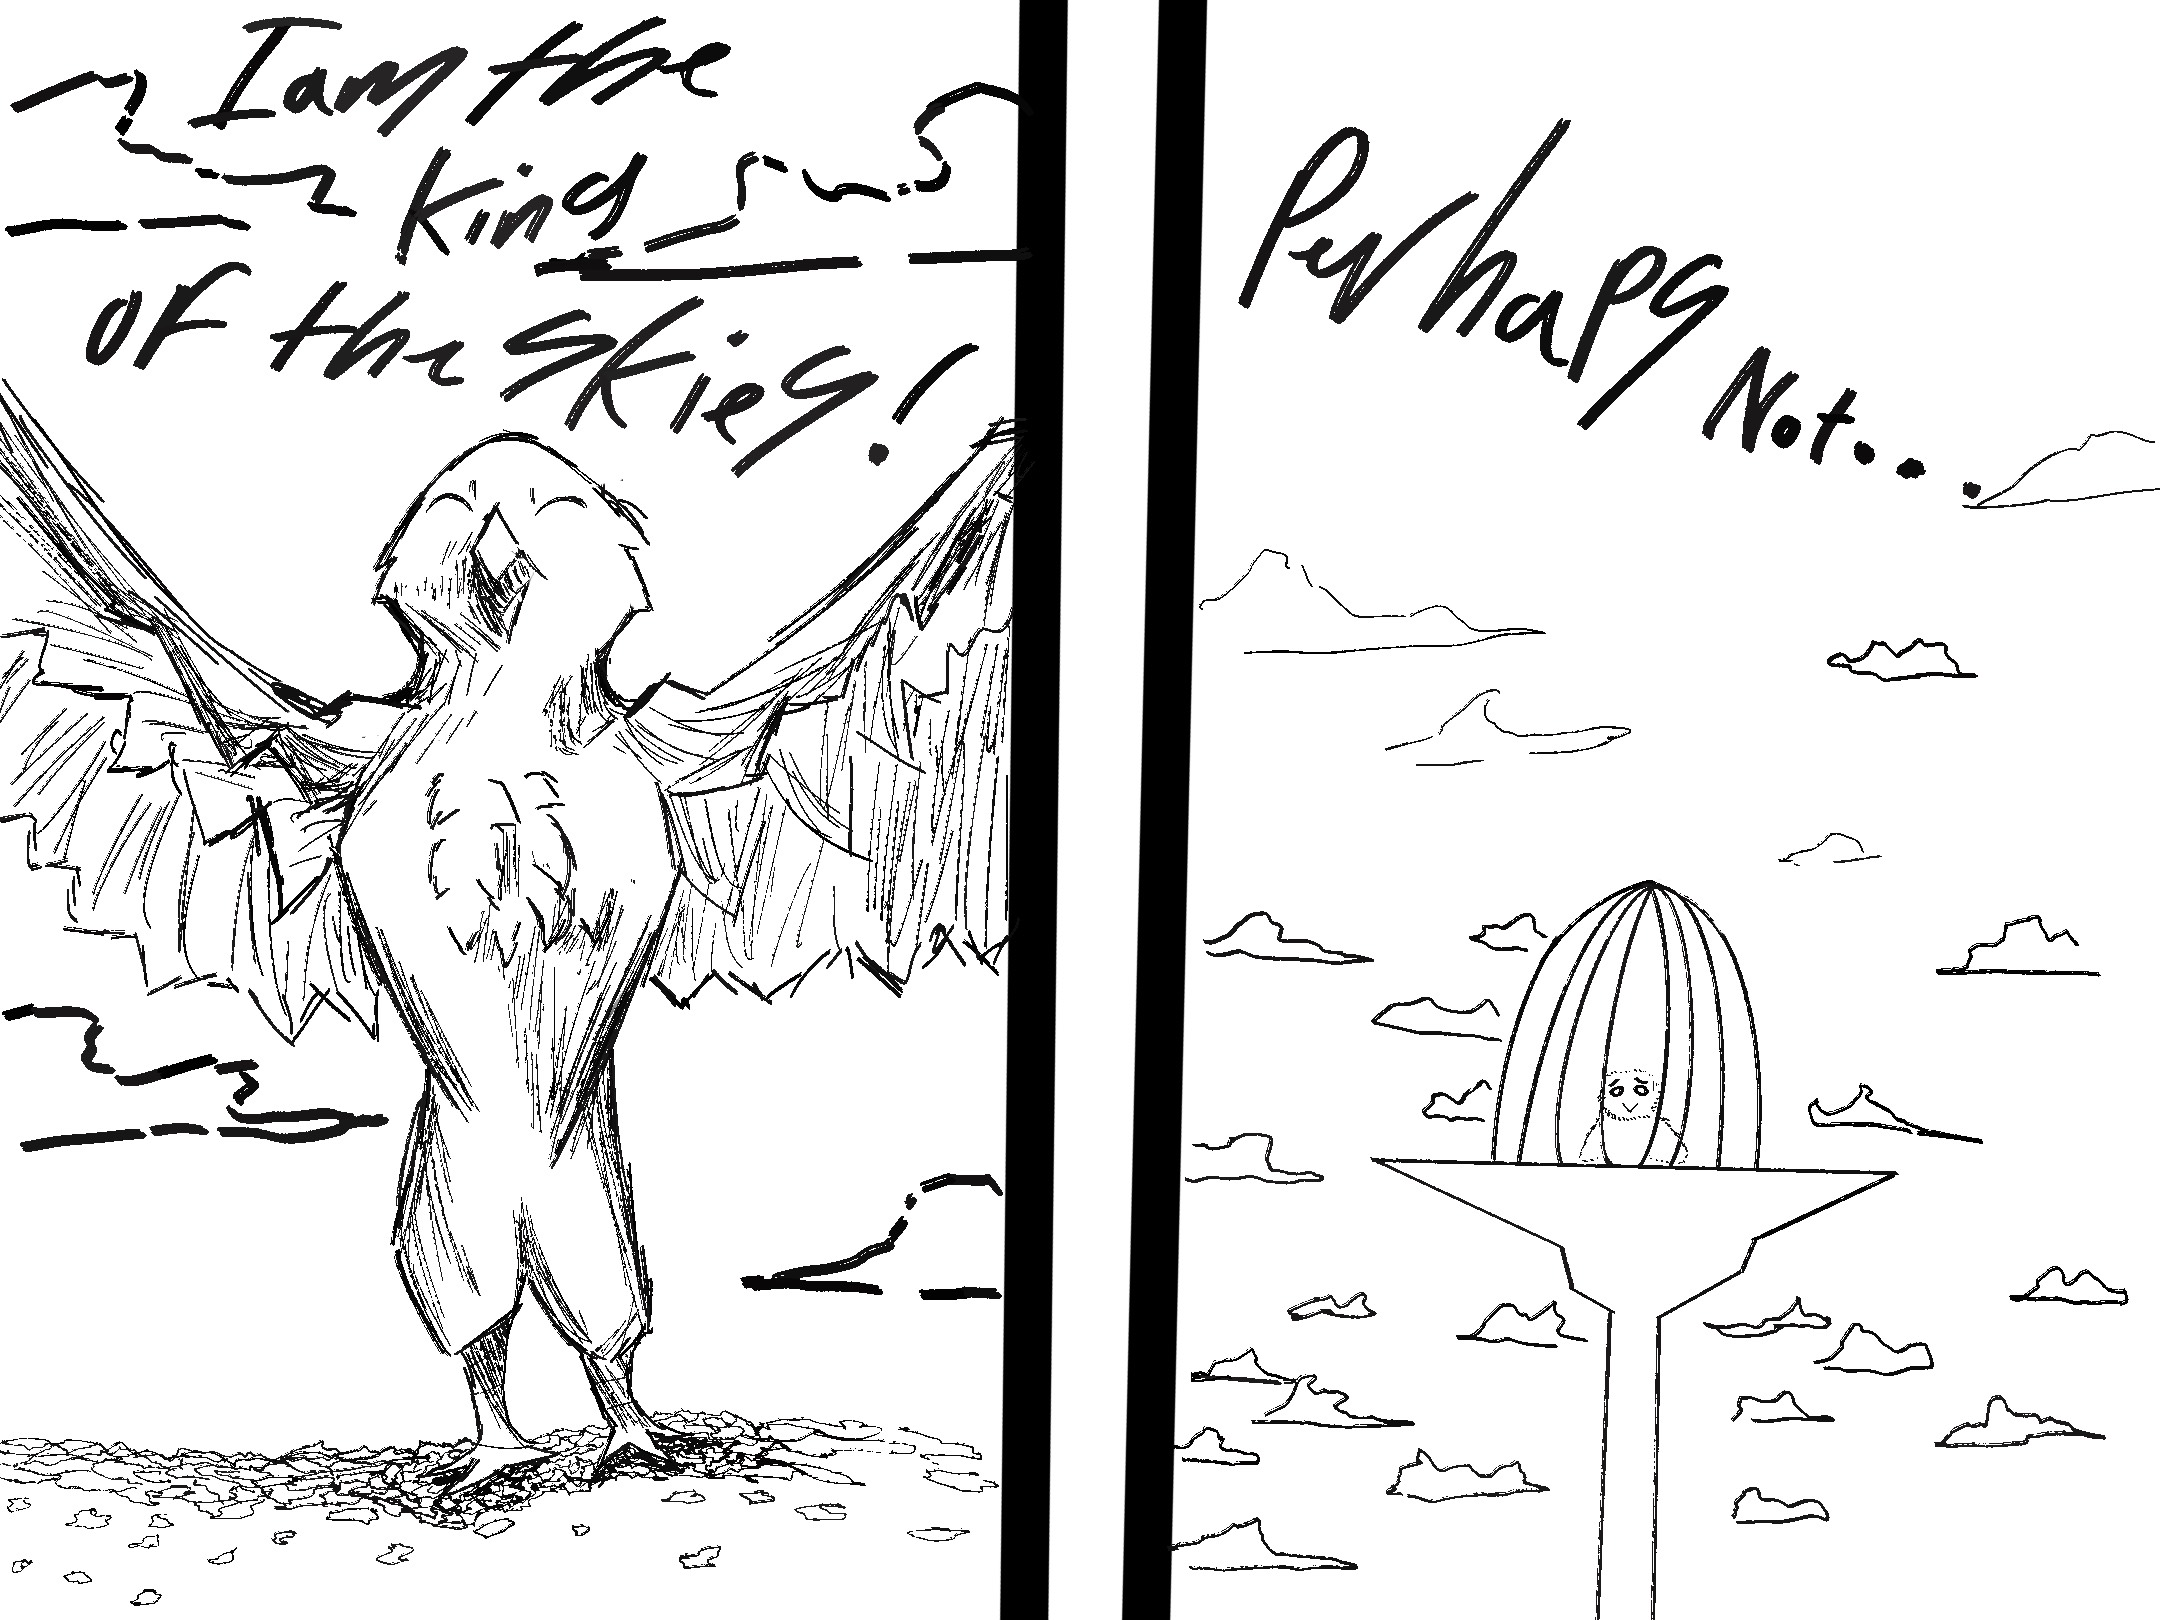 I am the
King
of the skies!
Perhaps
Not...